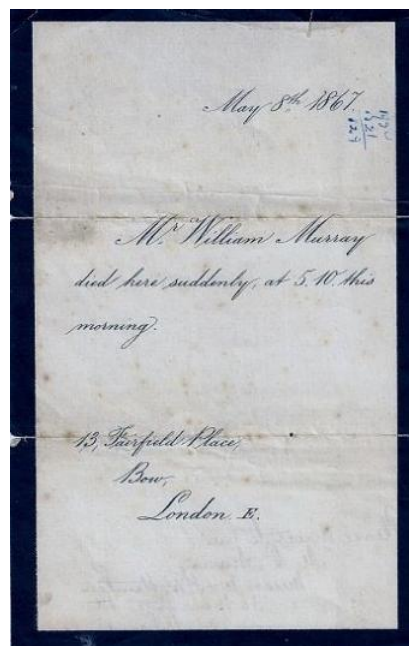 May 8th 1867.
Mr William Murray
died here suddenly, at 5.10. this
morning.
13, Fairfield Place,
Bow,
London. E.